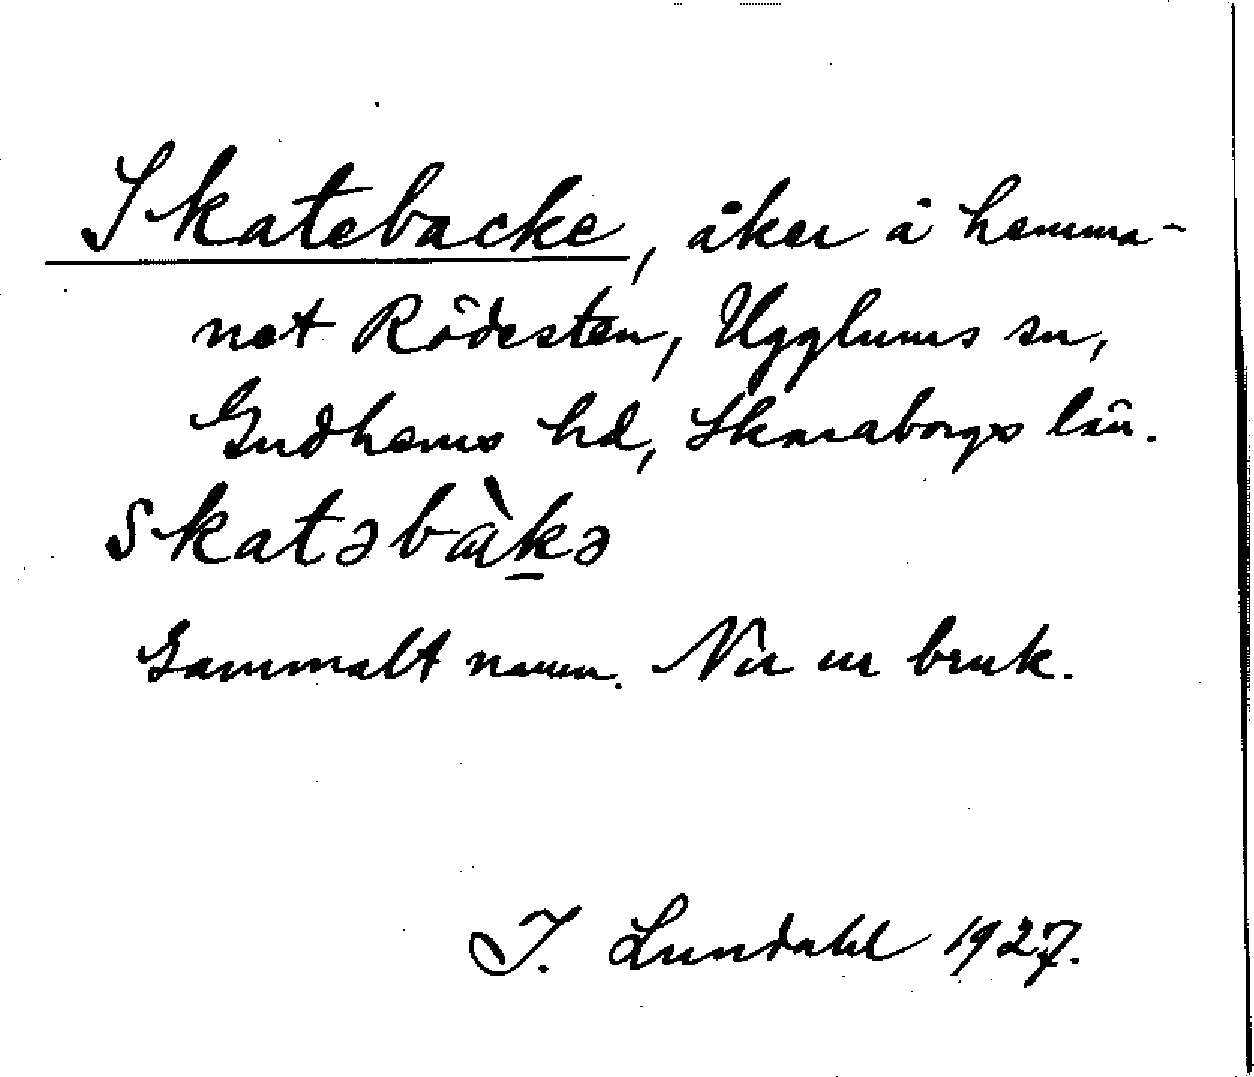 Skatebacke, åker å hemma-
net Rödesten, Ugglums sn,
Gudhems hd, Skaraborgs län.
skatəbàkə
Gammalt namn. Nu ur bruk.
I. Lundahl 1927.